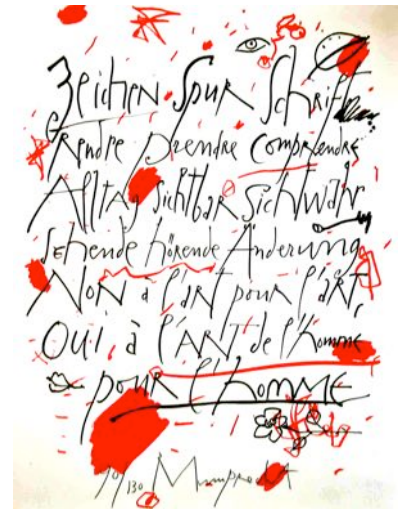 Zeichen Spur Schrift
Rendre prendre comprendre
Alltag sichtbar sichtwahr
sehende hörende Änderung
NoN à l'ART pour l'ART,
OUI à l'ART de l'homme
pour l'homme
/130